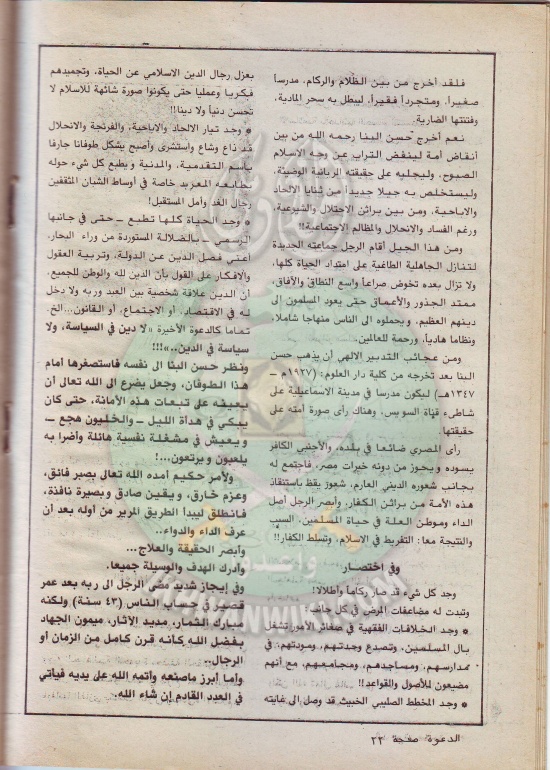 فلقد أخرج من بين الظلام والركام، مدرساً
صغيراً، ومتجرداً فقيراً، ليبطل به سحر المادية،
وفتنتها الضارية.
نعم أخرج حسن البنا رحمه الله من بين
أنقاض أمة لينفض التراب عن وجه الاسلام
الصبوح، وليجليه على حقيقته الربانية الوضيئة،
وليستخلص به جيلا جديداً من ثنايا الالحاد
والاباحية، ومن بين براثن الاحتلال والشيوعية،
ورغم الفساد والانحلال والمظالم الاجتماعية!!
ومن هذا الجيل أقام الرجل جماعته الجديدة
لتنازل الجاهلية الطاغية على امتداد الحياة كلها،
ولا تزال بعده تخوض صراعاً واسع النطاق والآفاق،
ممتد الجذور والأعماق حتى يعود المسلمون إلى
دينهم العظيم، ويحملوه الى الناس منهاجا شاملا،
ونظاما هادياً، ورحمة للعالمين.
ومن عجائب التدبير الالهي أن يذهب حسن
البنا بعد تخرجه من كلية دار العلوم: (١٩٢٧م ــ
١٣٤٧هـ) ليكون مدرسا في مدينة الاسماعيلية على
شاطىء قناة السويس، وهناك رأى صورة أمته على
حقيقتها.
رأى المصري ضائعا في بلده، والأجنبي الكافر
يسوده ويحوز من دونه خيرات مصر، فاجتمع له
بجانب شعوره الديني العارم، شعور يقظ باستنقاذ
هذه الأمة من براثن الكفار، وأبصر الرجل أصل
الداء وموطن العلة في حياة المسلمين، السبب
والنتيجة معا: التفريط في الاسلام، وتسلط الكفار!!
وفي اختصار
وجد كل شيء قد صار ركاماً وأطلالا!
وتبدت له مضاعفات المرض في كل جانب:
* وجد الخلافات الفقهية في صغائر الأمور تشغل
بال المسلمين، وتصدع وحدتهم، ومودتهم، في
مدارسهم، ومساجدهم، ومجامعهم، مع أنهم
مضيعون للأصول والقواعد!!
* وجد المخطط الصليبي الخبيث قد وصل الى غايته
بعزل رجال الدين الاسلامي عن الحياة، وتجميدهم
فكريا وعمليا حتى يكونوا صورة شائهة للاسلام لا
تحسن دنياً ولا دينا!!
* وجد تيار الالحاد والاباحية، والفرنجة والانحلال
قد ذاع وشاع واستشرى وأصبح يشكل طوفانا جارفا
باسم التقدمية، والمدنية و يطبع كل شيء حوله
بطابعه المعربد خاصة في أوساط الشبان المثقفين
رجال الغد وأمل المستقبل!
* وجد الحياة كلها تطبع ــ حتى في جانبها
الرسمي ــ بالضلالة المستوردة من وراء البحار،
أعني فصل الدين عن الدولة، وتربية العقول
والأفكار على القول بأن الدين لله والوطن للجميع،
أن الدين علاقة شخصية بين العبد وربه ولا دخل
له في الاقتصاد، أو الاجتماع، أو القانون... الخ.
تماما كالدعوة الأخيرة «لا دين في السياسة، ولا
سياسة في الدين..»!!!
ونظر حسن البنا الى نفسه فاستصغرها أمام
هذا الطوفان، وجعل يضرع الى الله تعالى أن
يعينه على تبعات هذه الأمانة، حتى كان
يبكي في هدأة الليل ــ والخليون هجع ــ
و يعيش في مشغلة نفسية هائلة وأضرا به
يلعبون و يرتعون...!
ولأمر حكيم أمده الله تعالى بصبر فائق،
وعزم خارق، ويقين صادق وبصيرة نافذة،
فانطلق ليبدأ الطريق المرير من أوله بعد أن
عرف الداء والدواء..
وأبصر الحقيقة والعلاج...
وأدرك الهدف والوسيلة جميعا.
وفي إيجاز شديد مضى الرجل الى ربه بعد عمر
قصير في حساب الناس (٤٣ سنة) ولكنه
مبارك الثمار، مديد الآثار، ميمون الجهاد
بفضل الله كأنه قرن كامل من الزمان أو
الرجال..
وأما أبرز ماصنعه وأتمه الله على يديه فيأتي
في العدد القادم إن شاء الله.
الدعوة صفحة ٢٣